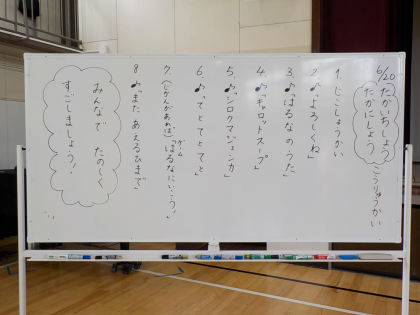 6/20 たかいちしょう
たかにしょう こうりゅうかい
1. じこしょうかい
2. ♪「よろしくね」
3. ♪「はるなのうた」
4. ♪「キャロットスープ」
5. ♪「シロクマジェンカ」
6. ♪「てとてとてと」
7. (じかんがあれば)ゲーム「はるなにいこう!」
8 ♪「また あえるひまで」
みんなで たのしく
すごしましょう!